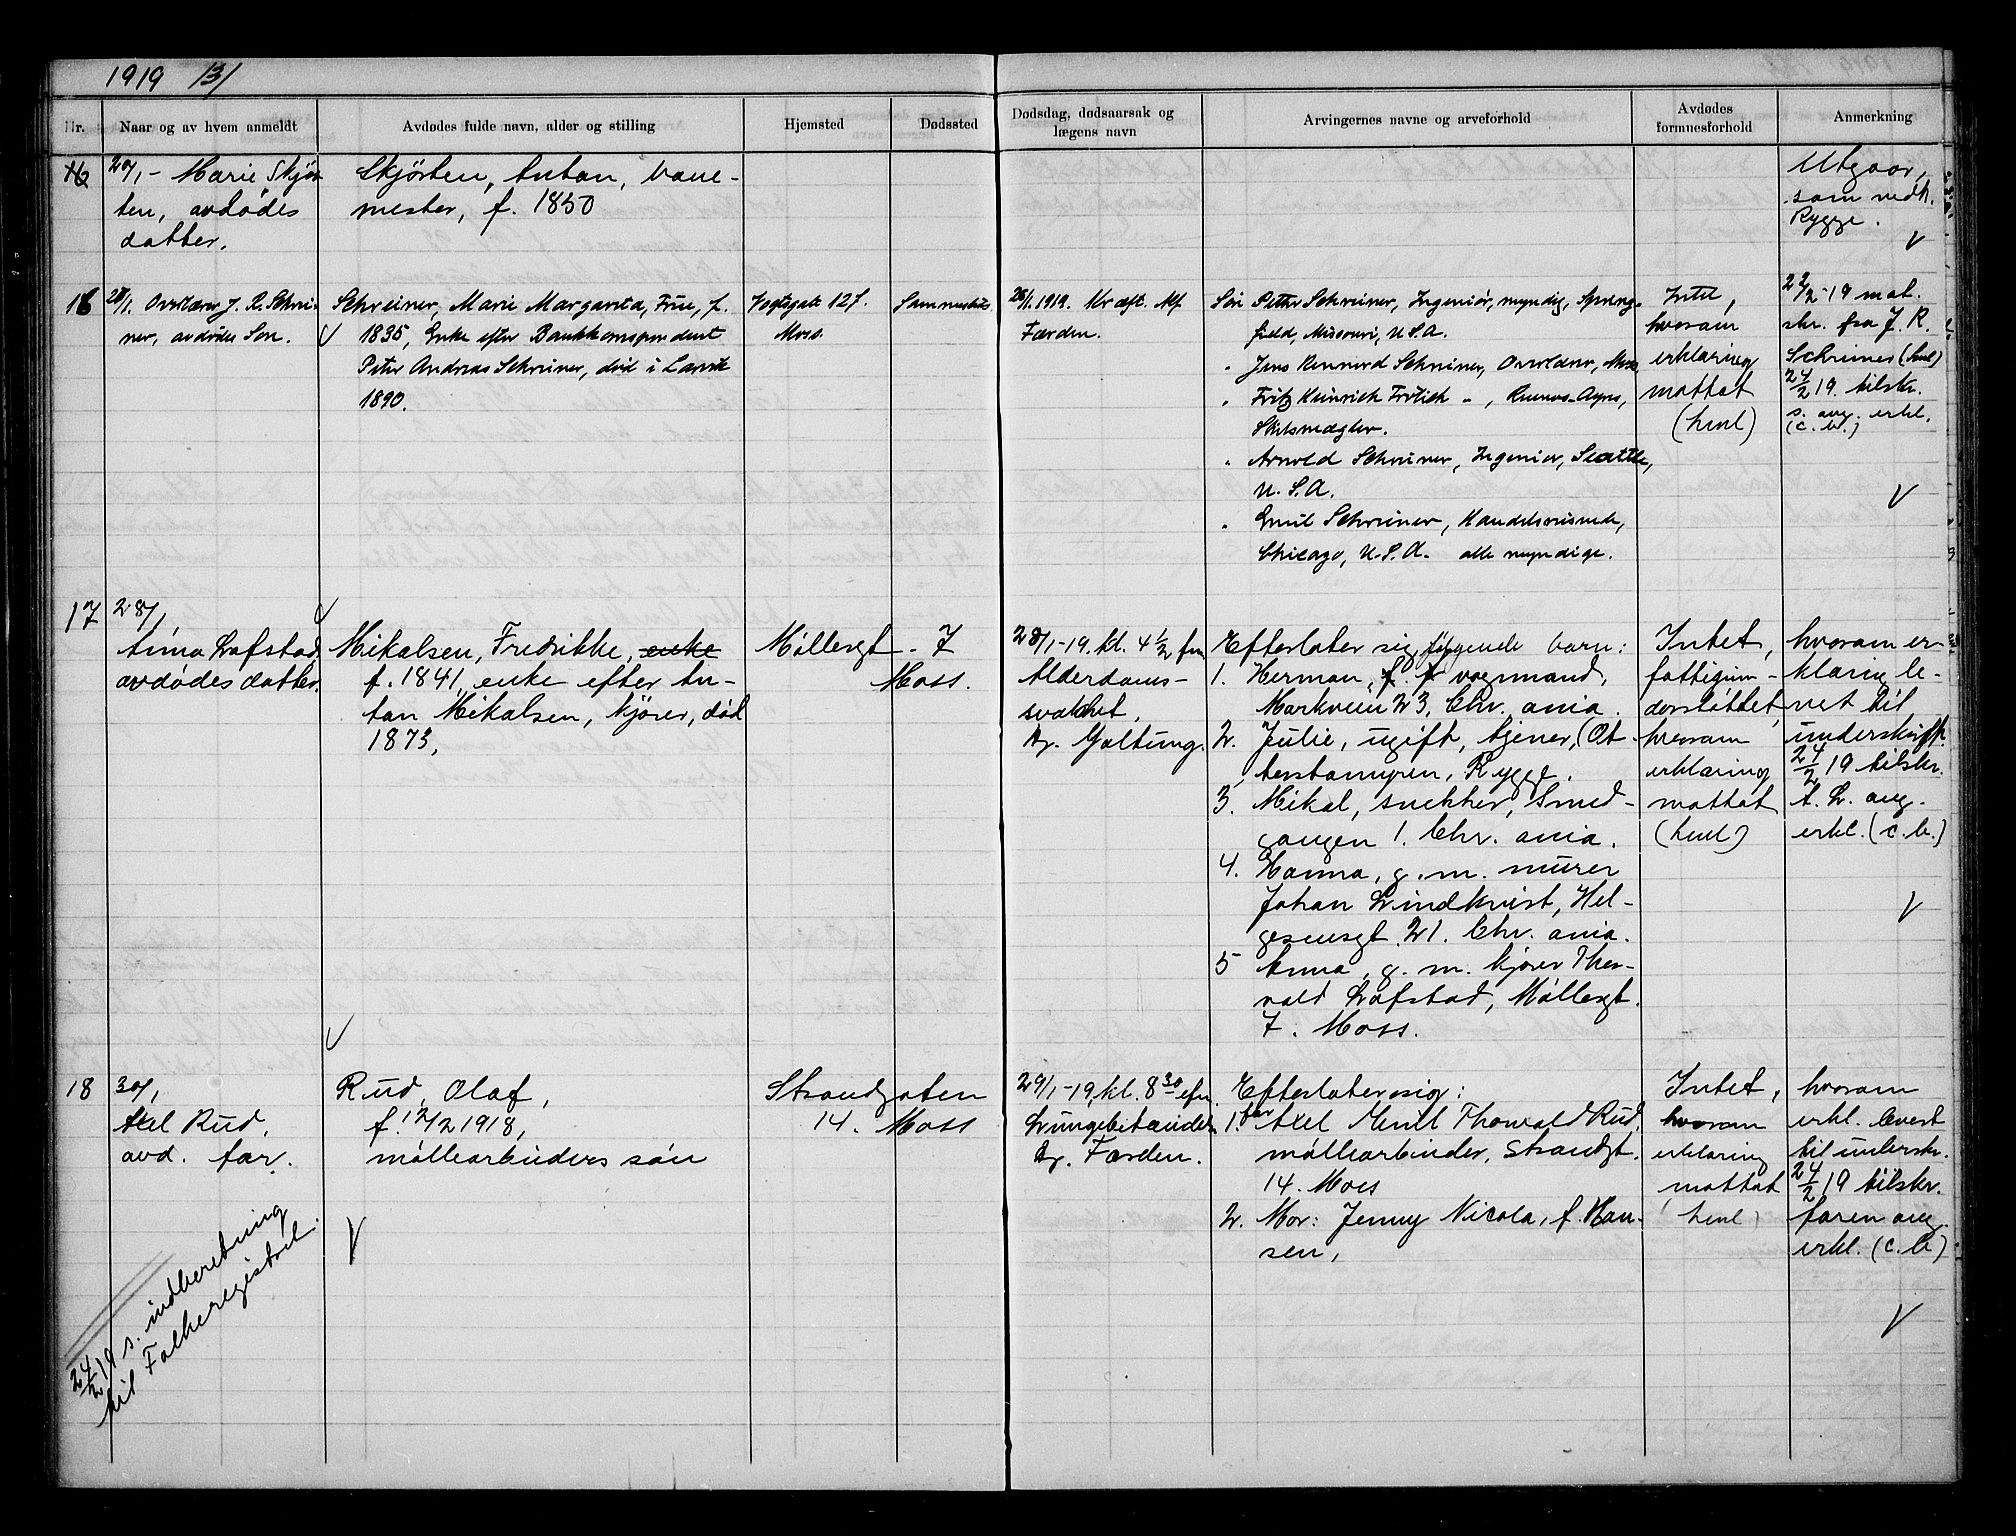 1919 13/
Nr.
Naar og av hvem anmeldt
Avdødes fulde navn, alder og stilling
Hjemsted
Dødssted
Dødsdag, dødsaarsak og
lægens navn
Arvingernes navne og arveforhold
Avdødes
formuesforhold
Anmerkning
16
29/1 - Marie Skjør-
ten, avdødes
datter.
Skjørten, Anton, bane-
mester, f. 1850
Utgaar,
som vedk.
Rygge.
16
28/1. Overlærer J. R. Schrei-
ner, avdødes Søn.
Schreiner, Marie Margareta, Frue, f.
1835, Enke efter Bankkorrespondent
Peter Andreas Schreiner, død i Larvik
1890.
Vogtsgate 127.
Moss.
Sammesteds
28/1. 1919. Kræft. Af.
Færden.
Søn Peter Schreiner, Ingeniør, myndig, Spring-
field, Missouri, U.S.A.
" Jens Rennord Schreiner, Overlærer, Moss,
" Fritz Heinrich Frölich " , Buenos-Ayres,
Skibsmægler.
" Arnold Schreiner, Ingeniør, Seattle,
U.S.A.
" Emil Schreiner, Handelsreisende,
Chicago, U.S.A. alle myndige.
Intet,
hvorom
erklæring
mottat
(hml)
22/2-19 mot.
skr. fra J. R.
Schreiner (hml)
24/2 19. tilskr.
s. ang. erkl.
(c. b.)
17
28/1
Anna Lofstad,
avdødes datter.
Mikalsen, Fredrikke, enke
f. 1841, enke efter An-
ton Mikalsen, kjører, død
1873,
Møllergt. 7
Moss.
28/1-19. kl. 4 1/2 fm
Alderdoms-
svakhet.
Dr. Galtung.
Efterlater sig følgende barn:
1. Herman, f. vognmand,
Markveien 23, Chr. ania.
2. Julie, ugift, tjener, (Ot-
terstangen, Rygge.
3. Mikal, snekker, Smed-
gangen 1. Chr. ania.
4. Hanna, g. m. murer
Johan Lindkvist, Hel-
gesensgt. 21. Chr. ania.
5 Anna, g. m. kjører Thor-
vald Lofstad, Møllergt.
7. Moss.
Intet,
fattigun-
derstøttet,
hvorom
erklæring
mottat
(hml)
hvorom er-
klæring le-
vert til
underskrift.
24/2 19 tilskr.
A. L. ang.
erkl. (c. b.)
18
30/1
Axel Rud,
avd. far.
Rud, Olaf,
f. 12/2 1918,
møllearbeiders søn
Strandgaten
14. Moss
29/1-19, kl. 8 30 efm.
Lungebetændels.
Dr. Færden.
Efterlater sig:
1. far Axel Emil Thorvald Rud,
møllearbeider, Strandgt.
14. Moss
2. Mor: Jenny Nicola, f. Han-
sen,
Intet,
hvorom
erklæring
mottat
(hml)
hvorom
erkl. levert
til underskr.
24/2 19 tilskr.
faren ang.
erkl. (c. b.)
24/2 19 s. indberetning
til Folkeregistret.